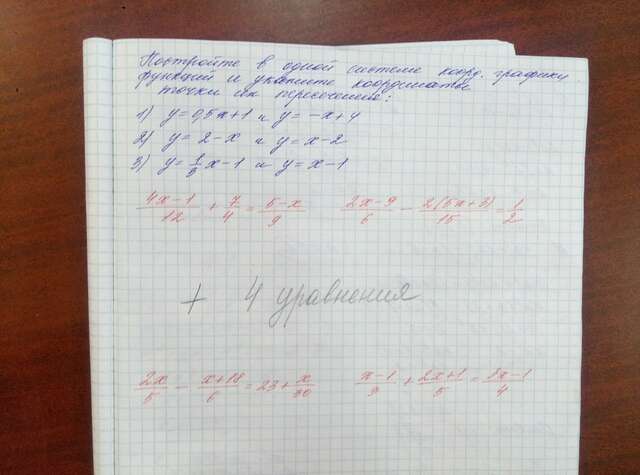 Постройте в одной системе коорд. графики
функций и укажите координаты
точки их пересечения:
1) y=0,5x+1 и y=-x+4
2) y=2-x и y=x-2
3) y=1/3x-1 и y=x-1
(4x-1)/12 + 7/4 = (5-x)/9 (2x-9)/6 - 2(5x+3)/15 = 1/2
+ 4 уравнения
2x/5 - (x+18)/6 = 23 + x/30 (x-1)/3 + (2x+1)/5 =